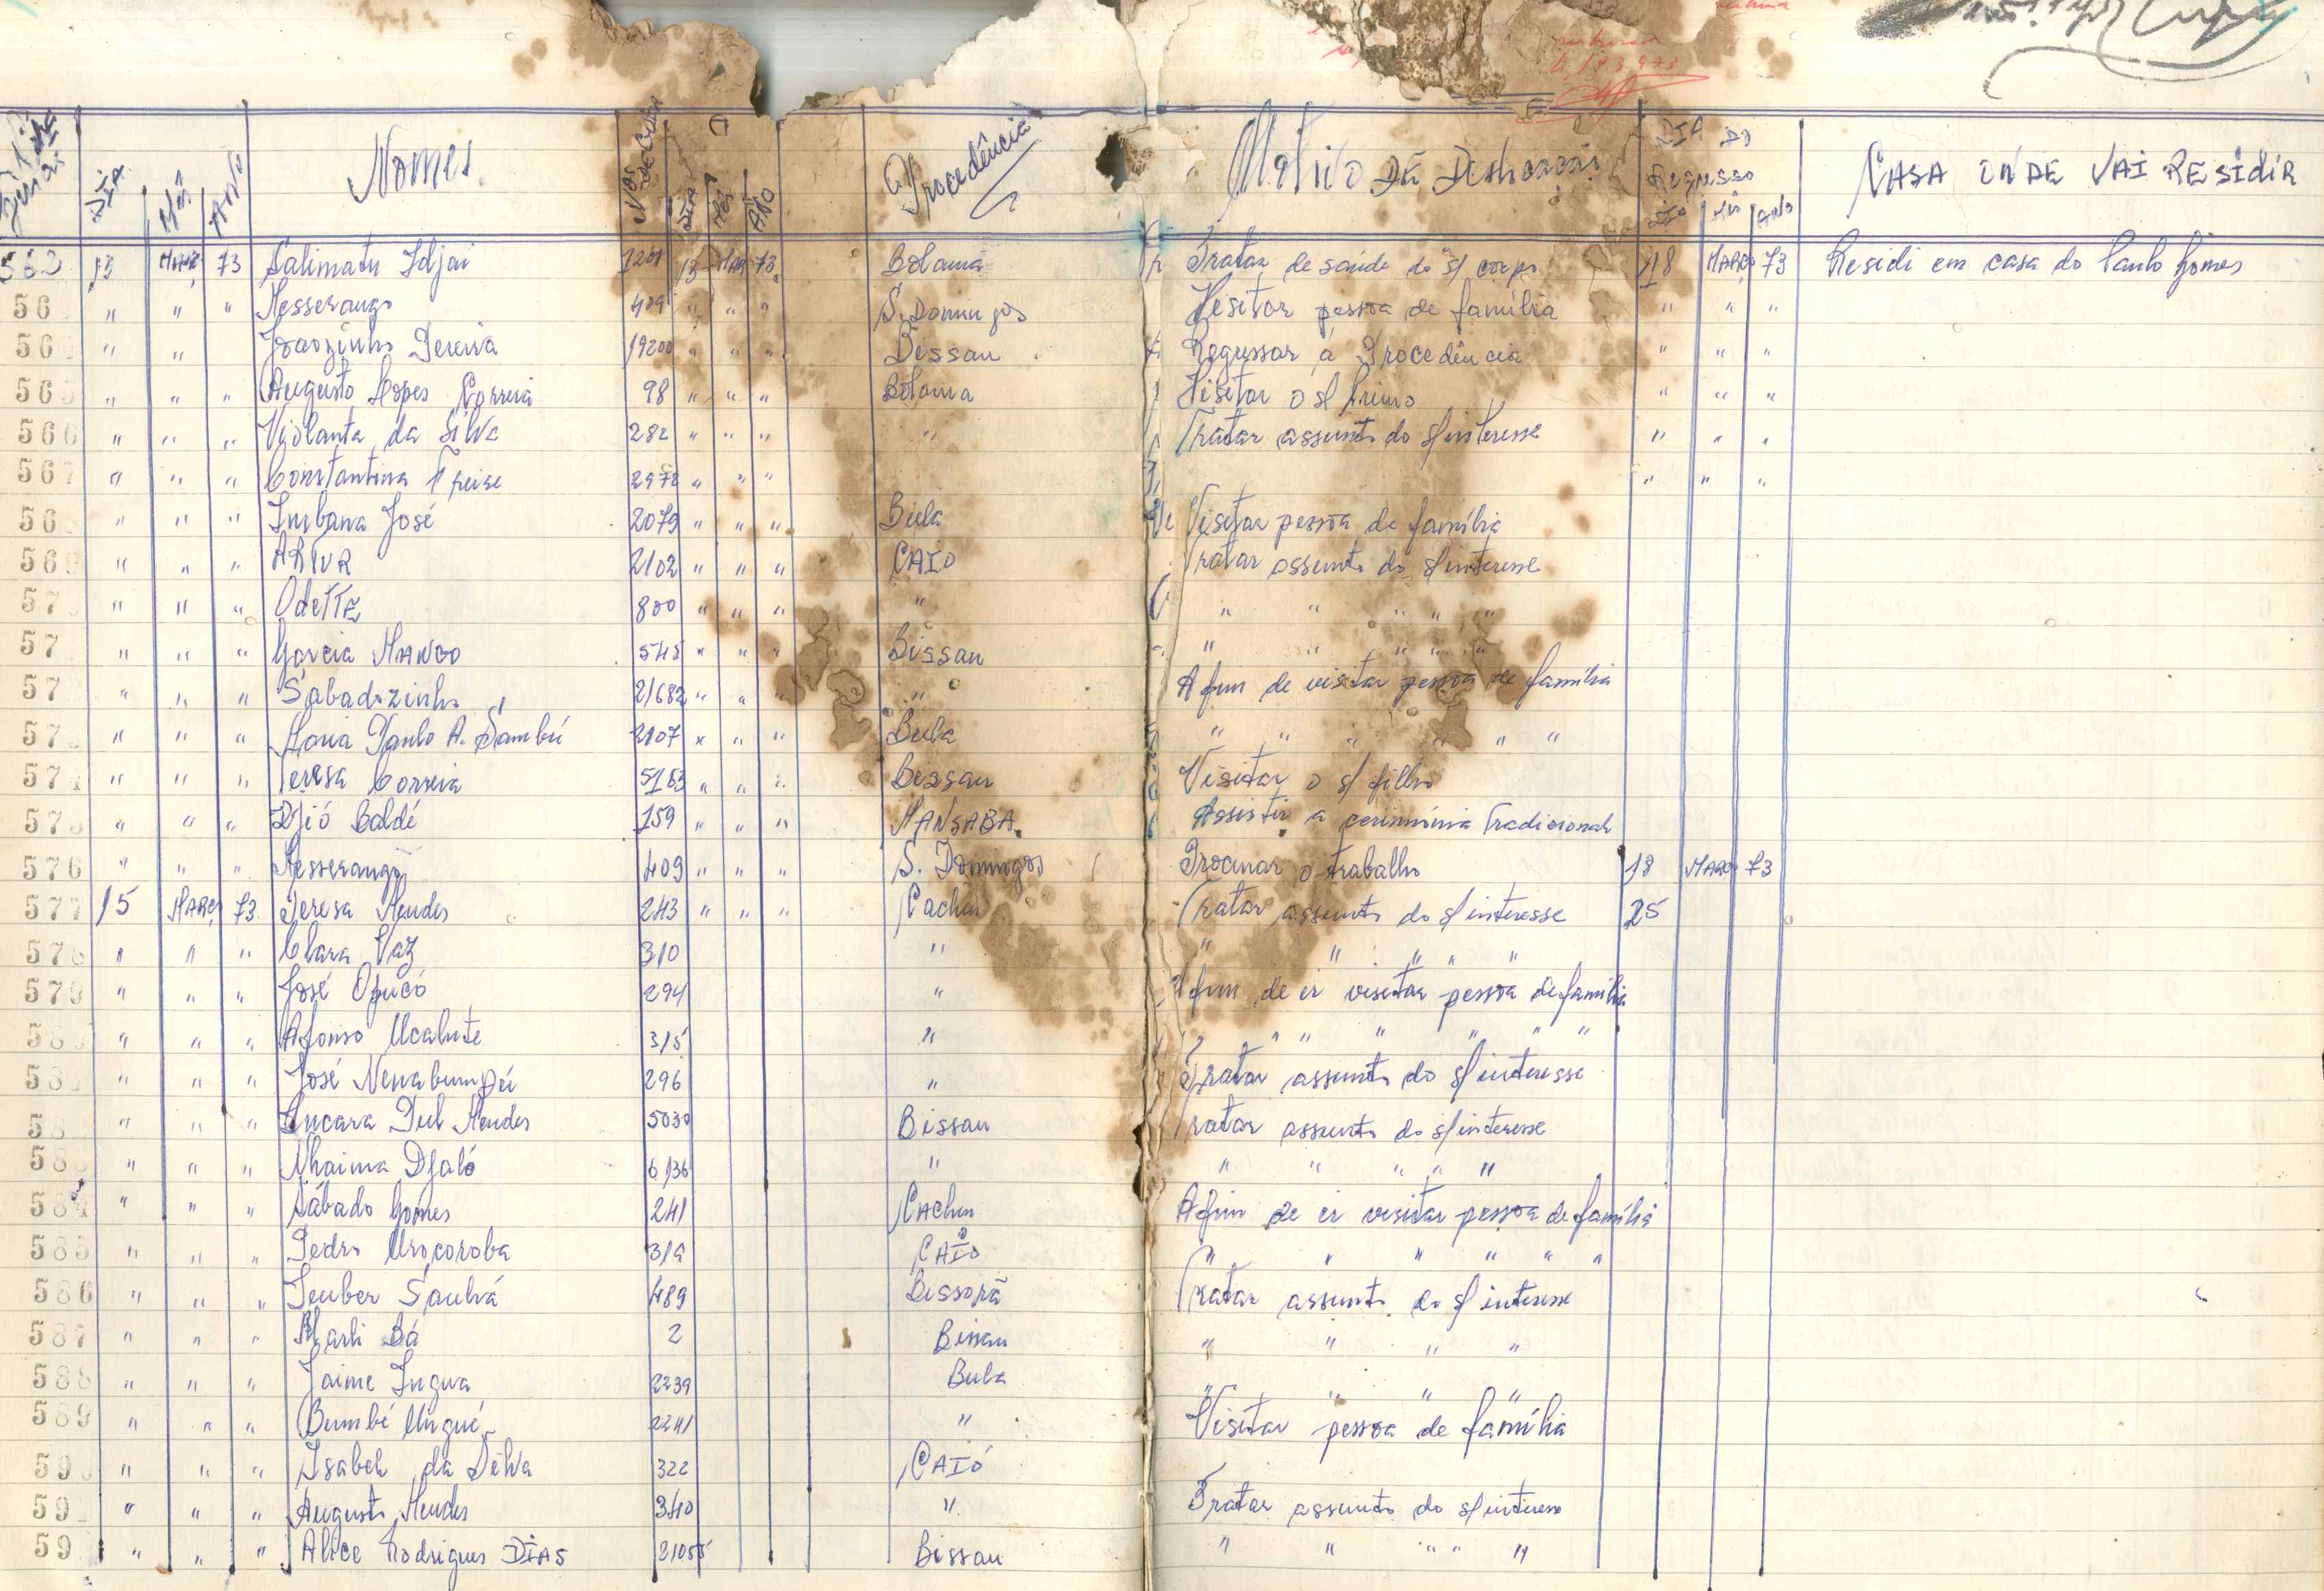 DIA Mês ANO Nomes Nos DIA Mês ANO Procedência Motivo DE DIA DO Regresso Mês ANO CASA ONDE VAI RESIDIR
13 MAR 73 Salimatu Idjai 1201 13 MAR 73 Bolama Tratar de saúde do s/ corpo 18 MARÇ 73 Residi em casa do Paulo Gomes
56 " " " Messerango 409 " " " S. Domingos Vesitar pessoa de família " " "
56 " " Joãozinho Pereira 19200 " " " Bissau Regressar á Procedência " " "
565 " " " Augusto Lopes Correia 98 " " " Bolama Visitar o s/ primo " " "
566 " " " Violanta da Silva 282 " " " " Tratar assunto do s/interesse " " "
567 " " " Constantina 2972 " " " " " "
56 " " " José 2079 " " " Bula Visitar pessoa de família
569 " " " 2102 " " " CAIO Tratar assunto do s/interesse
57 " " " Odette 800 " " " " " " " " "
57 " " " Garcia MANGO 545 " " " Bissau " " " " "
57 " " " Sabadozinho 21682 " " " " Afim de visitar pessoa de família
57 " " " Maria Paulo A. Sambú 2107 " " " Bula " " " " " "
574 " " " Teresa Correia 5163 " " " Bissau Visitar o s/ filho
575 " " " Djió Baldé 159 " " " MANSABA Assistir a cerimónia Tradicional
576 " " " Messerango 409 " " " S. Domingos Procurar o trabalho 18 MARÇ 73
577 15 MARÇ 73 Teresa Mendes 243 " " " Cacheu Tratar assunto do s/interesse 25
578 " " " Clara Vaz 310 " " " " " "
579 " " " José Opucó 294 " Afim de ir visitar pessoa de família
58 " " " Afonso Ucalute 315 " " " " " " "
58 " " " José 296 " Tratar assunto do s/interesse
58 " " " Mendes 5030 Bissau Tratar assunto do s/interesse
58 " " " Nhaima Djaló 6136 " " " " " "
584 " " " Sábado Gomes 241 Cacheu Afim de ir visitar pessoa de família
585 " " " Pedro Urocoroba 319 CAIÓ " " " " " "
586 " " " 489 Bissorã Tratar assunto do s/interesse
587 " " " Bá 2 Bissau " " " "
588 " " " Jaime Ingua 2239 Bula " " " "
589 " " " Bumbé Ungué 2241 " Visitar pessoa de família
59 " " " Isabel da Silva 322 CAIÓ
59 " " " Augusto Mendes 340 " Tratar assunto do s/interesse
59 " " " Alice Rodrigues DIAS 21055 Bissau " " " " "